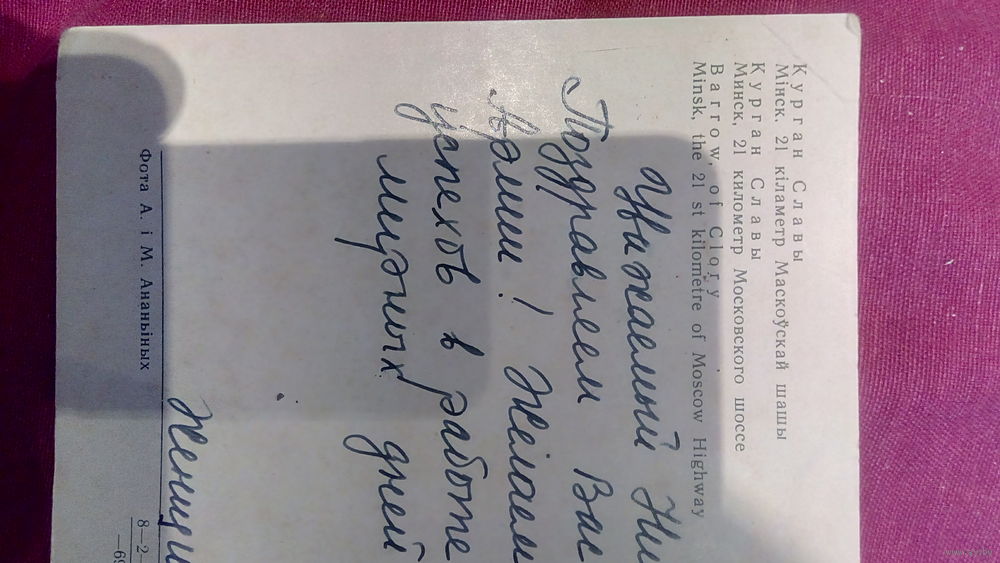 Курган Славы
Мінск, 21 кіламетр Маскоўскай шашы
Курган Славы
Минск, 21 километр Московского шоссе
Barrow, of Clory
Minsk, the 21 st kilometre of Moscow Highway
Уважаемый Ни
Поздравляем Вас
Армии! Желаем
успехов в работе
мирных дней
Женщи
Фота А. і М. Ананьіных
8—2—
—69